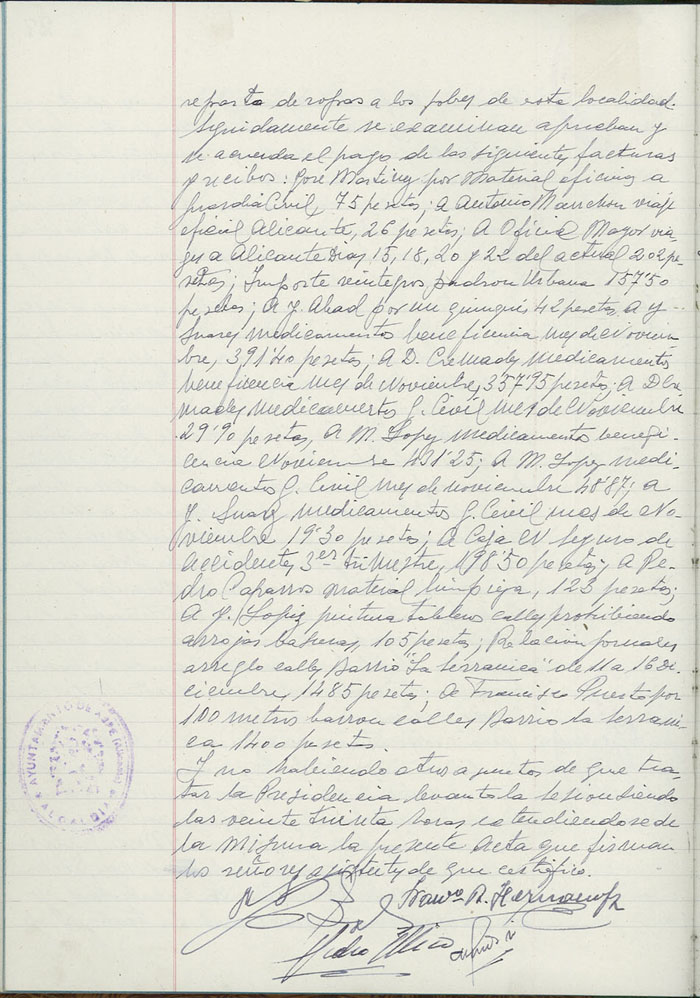 reparto de ropas a los pobres de esta localidad.
Siguidamente se examinan aprueban y
se acuerda el pago de las siguientes facturas
y recibos: José Martinez por Material oficinas a
Guardia Civil, 75 pesetas; a Antonio Manchon viaje
oficial Alicante, 26 pesetas; A Oficial Mayor via-
ges a Alicante Dias 15, 18, 20 y 22 del actual 202 pe-
setas; Importe reintegros padron Urbana 157'50
pesetas; A J. Abad por un quinqués 42 pesetas, a J
Suarez medicamentos beneficencia mes de Noviem-
bre, 391'40 pesetas; a D. Cremades medicamentos
beneficencia mes de Noviembre, 357'95 pesetas; A D Cre-
mades medicamentos G. Civil mes de Noviembre
29'90 pesetas, A M. Lopez medicamentos benefi-
cencia Noviembre 431'25; A M. Lopez medi-
camentos G. Civil mes de noviembre 48'87; a
J. Suarez medicamentos G. Civil mes de No-
viembre 19'30 pesetas; a Caja N Seguro de
accidentes, 3er trimestre, 198'50 pesetas; a Pe-
dro Caparros material limpieza, 123 pesetas;
A J. Lopez pintura tableros calles prohibiendo
arrojas basuras, 105 pesetas; Relación jornales
arreglo calles Barrio "La Serranica" de 11 a 16 di-
ciembre, 1485 pesetas; a Francisco Puerto por
100 metros calles Barrio la Serrani-
ca 1400 pesetas.
Y no habiendo otros asuntos de que tra-
tar la Presidencia levanto la sesion siendo
las veinte treinta horas, extendiendose de
la misma la presente Acta que firman
los señores asistentes de que certifico.
AYUNTAMIENTO DE ASPE (Alicante)
ALCALDIA